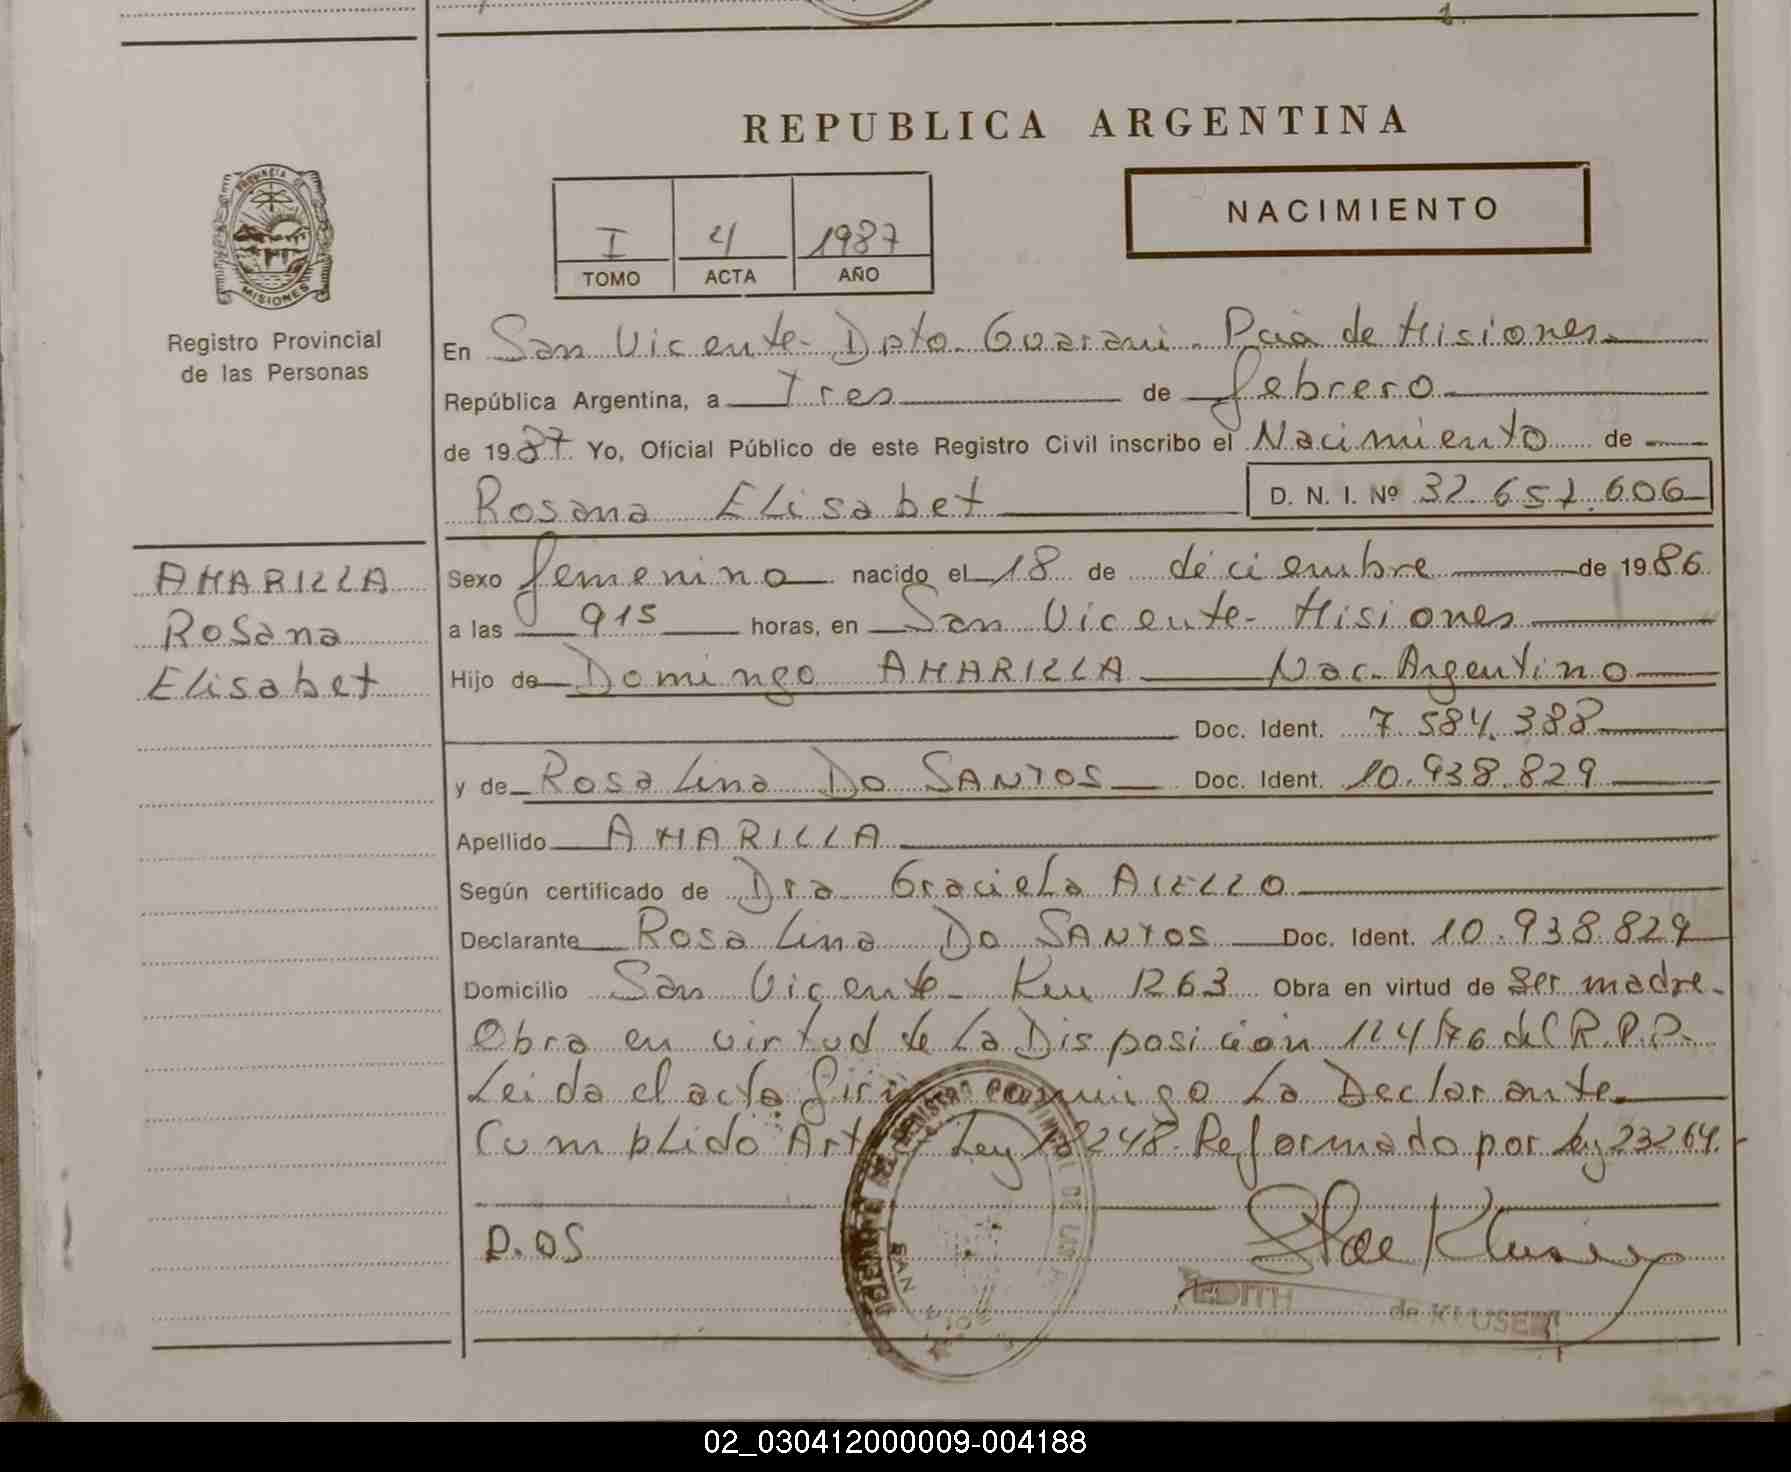 REPUBLICA ARGENTINA
I 4 1987
TOMO ACTA AÑO
NACIMIENTO
PROVINCIA DE
MISIONES
Registro Provincial
de las Personas
En San Vicente - Dpto. Guarani. Pcia de Misiones
República Argentina, a Tres de febrero
de 1987 Yo, Oficial Público de este Registro Civil inscribo el Nacimiento de
Rosana Elisabet D. N. I. Nº 32.651.606
AMARILLA
Rosana
Elisabet
Sexo femenino nacido el 18 de diciembre de 1986
a las 915 horas, en San Vicente - Misiones
Hijo de Domingo AMARILLA Nac. Argentino
Doc. Ident. 7.584.388
y de Rosalina Do SANTOS Doc. Ident. 10.938.829
Apellido AMARILLA
Según certificado de Dra Graciela AIELLO
Declarante Rosalina Do SANTOS Doc. Ident. 10.938.829
Domicilio San Vicente - Km 1263 Obra en virtud de ser madre.
Obra en virtud de La Disposicion 124/76 del R.P.P.
Leida el acta firma conmigo La Declarante
Cumplido Art Ley 18248. Reformado por Ley 23264.
D.OS
EDITH de KLUSE
02_030412000009-004188